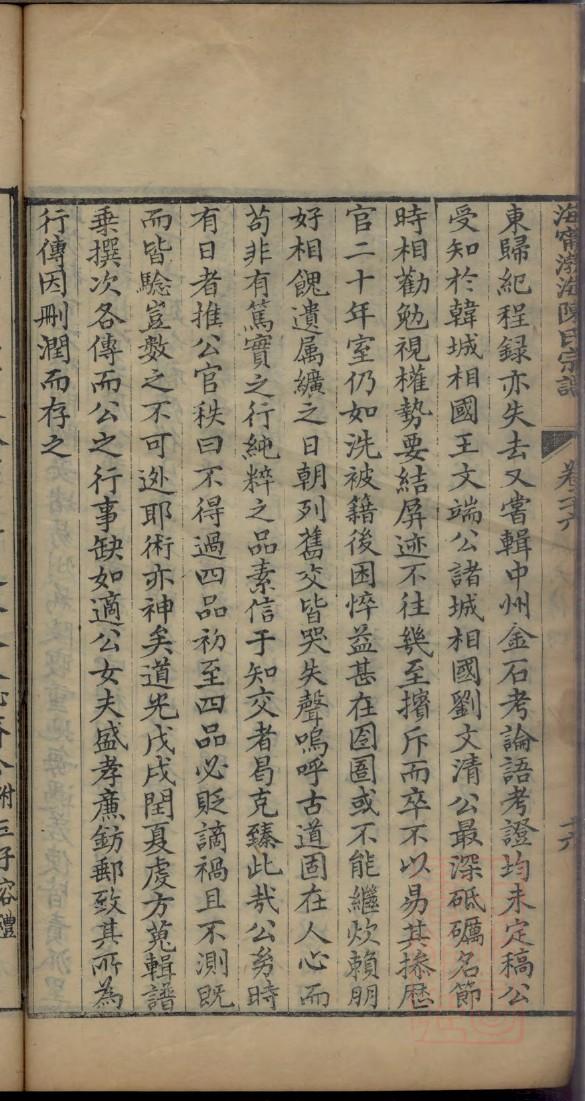 海寧渤海陳氏宗譜
卷二六
東歸紀程錄亦失去又嘗輯中州金石考論語考證均未定稿公
受知於韓城相國王文端公諸城相國劉文清公最深砥礪名節
時相勸勉視權勢要結屏迹不往幾至擠斥而卒不以易其操歷
官二十年室仍如洗被籍後困悴益甚在囹圄或不能繼炊賴朋
好相餽遺屬纊之日朝列舊交皆哭失聲嗚呼古道固在人心而
苟非有篤實之行純粹之品素信于知交者曷克臻此哉公另時
有日者推公官秩曰不得過四品初至四品必貶謫禍且不測既
而皆驗豈數之不可逃耶術亦神矣道光戊戌閏夏虔方蒐輯譜
乗撰次各傳而公之行事缺如適公女夫盛孝廉鈁郵致其所為
行傳因刪潤而存之
附三子容禮